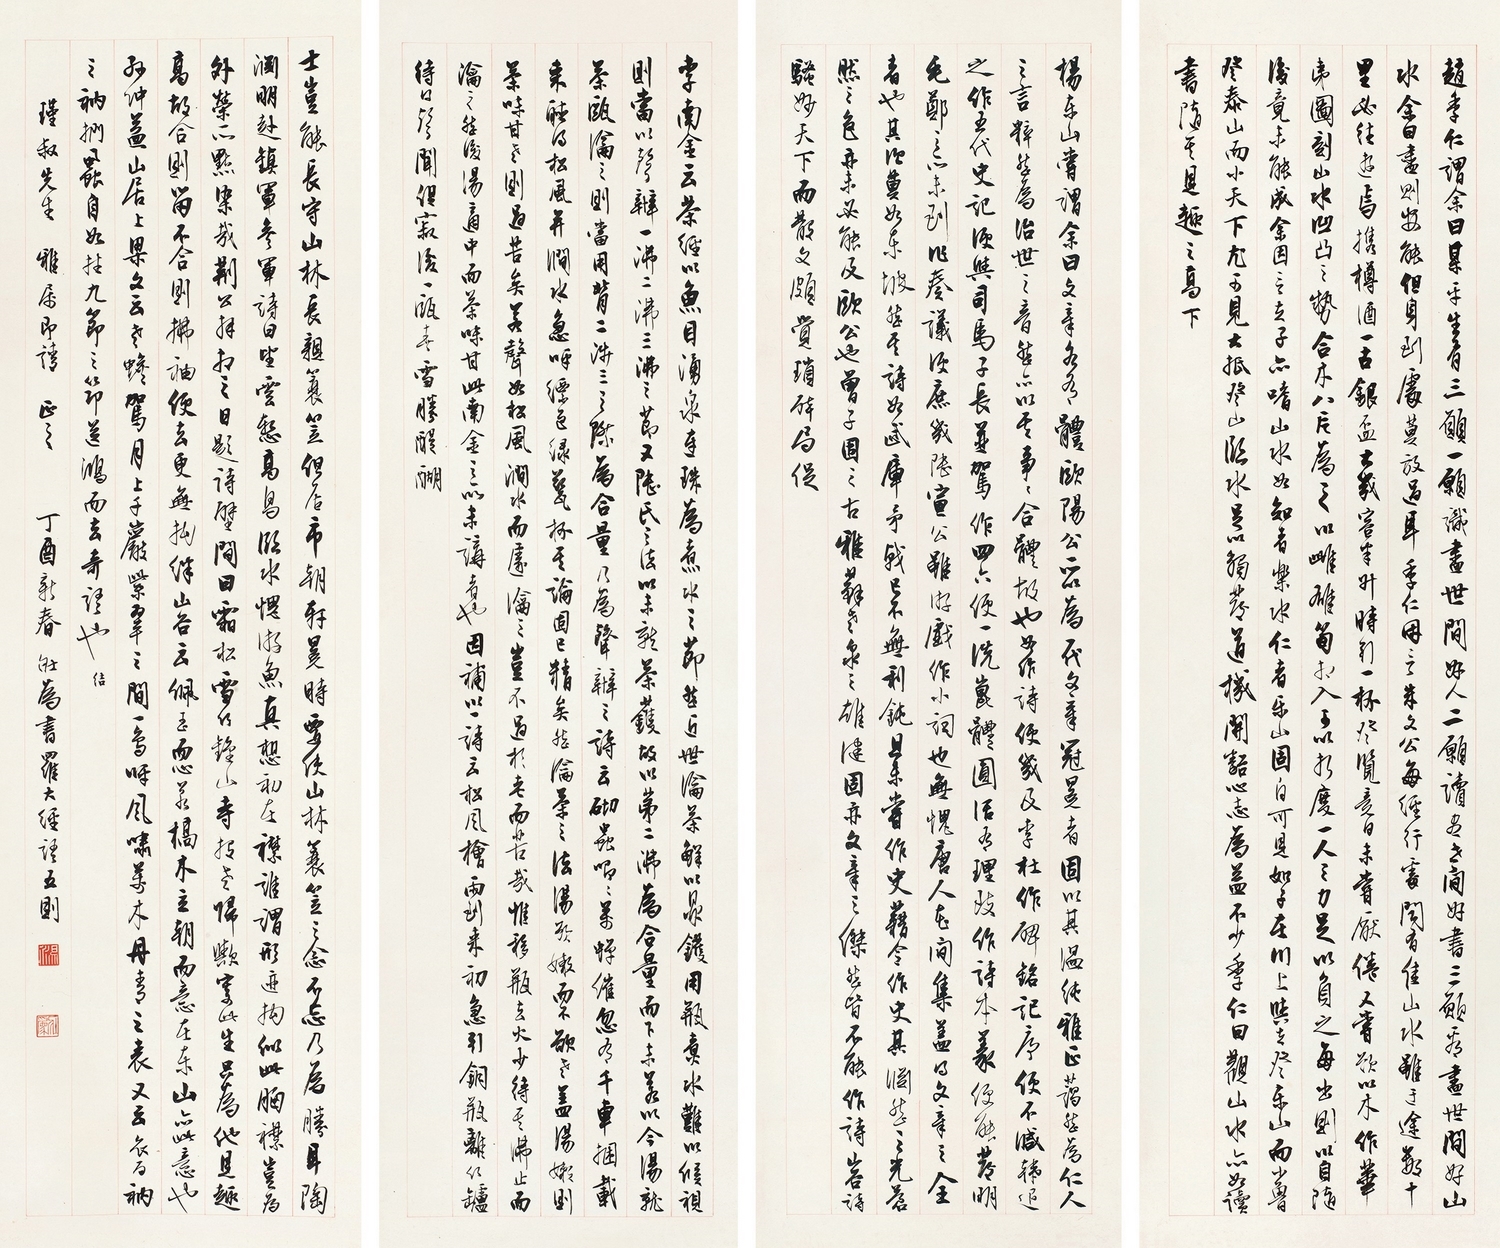 趙季仁謂余曰某平生有三願一願識盡世間好人二願讀盡世間好書三願看盡世間好山
水余曰盡則安能但身到處莫放過耳季仁因言朱文公每經行處聞有佳山水雖迂途數十
里必往遊焉攜樽酒一古銀盃大幾容半升時引一杯登覽竟日未嘗厭倦又嘗欲以木作華
夷圖刻山水凹凸之勢合木八片為之以雌雄筍相入可以折度一人之力足以負之每出則以自隨
後竟未能成余因言夫子亦嗜山水如知者樂水仁者樂山固自可見如子在川上與夫登東山而小魯
登泰山而小天下尤可見大抵登山臨水足以觸發道機開豁心志為益不少季仁曰觀山水亦如讀
書隨其見趣之高下
楊東山嘗謂余曰文章各有體歐陽公所以為一代文章冠冕者固以其溫純雅正藹然為仁人
之言粹然為治世之音然亦以其事事合體故也如作詩便幾及李杜作碑銘記序便不減韓退
之作五代史記便與司馬子長並駕作四六便一洗崑體圓活有理致作詩本義便能發明
毛鄭之所未到作奏議便庶幾陸宣公雖游戲作小詞也無愧唐人花間集蓋得文章之全
者也其次莫如東坡然其詩如武庫矛戟已不無利鈍且未嘗作史藉令作史其淵然之光蒼
然之色亦未必能及歐公也曾子固之古雅蘇老泉之雄健固亦文章之傑然皆不能作詩山谷詩
騷妙天下而散文頗覺瑣碎局促
李南金云茶經以魚目湧泉連珠為煮水之節然近世瀹茶鮮以鼎鑊用瓶煮水難以候視
則當以聲辨一沸二沸三沸之節又陸氏之法以未就茶鑊故以第二沸為合量而下未若以今湯就
茶甌瀹之則當用背二涉三之際為合量乃為聲辨之詩云砌蟲唧唧萬蟬催忽有千車捆載
來聽得松風并澗水急呼縹色綠瓷杯其論固已精矣然瀹茶之法湯欲嫩而不欲老蓋湯嫩則
茶味甘老則過苦矣若聲如松風澗水而遽瀹之豈不過於老而苦哉惟移瓶去火少待其沸止而
瀹之然後湯適中而茶味甘此南金之所未講者也因補以一詩云松風檜雨到來初急引銅瓶離竹爐
待得聲聞俱寂後一甌春雪勝醍醐
士豈能長守山林長親蓑笠但居市朝軒冕時要使山林蓑笠之念不忘乃為勝耳陶
淵明赴鎮軍參軍詩曰望雲慚高鳥臨水愧游魚真想初在襟誰謂形迹拘似此胸襟豈為
外榮所點染哉荊公拜相之日題詩壁間曰霜松雪竹鍾山寺投老歸歟寄此生只為他見趣
高故合則留不合則拂袖便去更無拘絆山谷云佩玉而心若槁木立朝而意在東山亦此意也
孫仲益山居上梁文云老蟾駕月上千巖紫翠之間一鳥呼風嘯萬木丹青之表又云衣百衲
之衲捫蝨自如拄九節之笻送鴻而去奇語也
瑾叔先生 雅屬即請 正之
丁酉新春 壯為書羅大經語五則